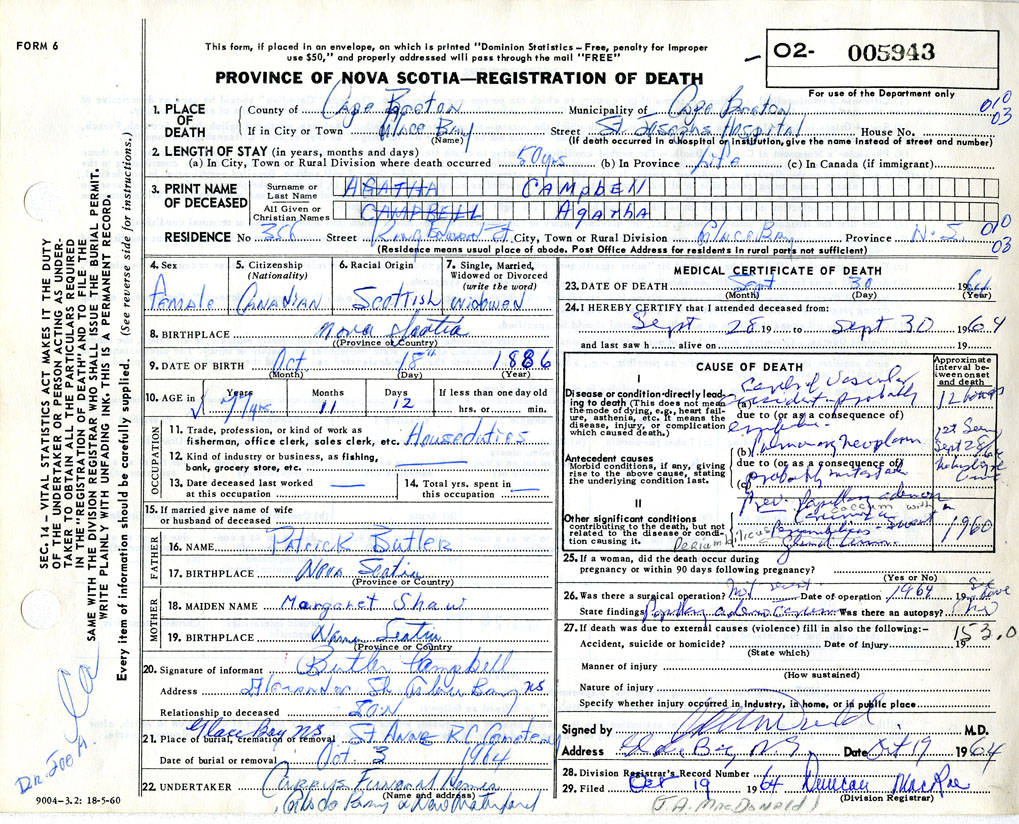 FORM 6
This form, if placed in an envelope, on which is printed "Dominion Statistics – Free, penalty for improper
use $50," and properly addressed will pass through the mail "FREE"
02- 005943
For use of the Department only
PROVINCE OF NOVA SCOTIA—REGISTRATION OF DEATH
010
03
1. PLACE OF DEATH
County of Cape Breton Municipality of Cape Breton
If in City or Town Glace Bay Street St. Josephs Hospital House No.
(Name) (If death occurred in a Hospital or Institution, give the name instead of street and number)
2. LENGTH OF STAY (in years, months and days)
(a) In City, Town or Rural Division where death occurred 50 yrs (b) In Province Life (c) In Canada (if immigrant)
3. PRINT NAME OF DECEASED
Surname or Last Name AGATHA CAMPBELL
All Given or Christian Names CAMPBELL AGATHA
RESIDENCE No 356 Street King Edward St City, Town or Rural Division Glace Bay Province N.S.
010
03
(Residence means usual place of abode. Post Office Address for residents in rural parts not sufficient)
4. Sex Female
5. Citizenship (Nationality) Canadian
6. Racial Origin Scottish
7. Single, Married, Widowed or Divorced (write the word) widowed
8. BIRTHPLACE Nova Scotia
(Province or Country)
9. DATE OF BIRTH Oct 18th 1886
(Month) (Day) (Year)
10. AGE in Years 77 yrs Months 11 Days 12 If less than one day old
hrs. or min.
OCCUPATION
11. Trade, profession, or kind of work as
fisherman, office clerk, sales clerk, etc. Houseduties
12. Kind of industry or business, as fishing,
bank, grocery store, etc.
13. Date deceased last worked
at this occupation
14. Total yrs. spent in
this occupation
15. If married give name of wife
or husband of deceased
FATHER
16. NAME Patrick Butler
17. BIRTHPLACE Nova Scotia
(Province or Country)
MOTHER
18. MAIDEN NAME Margaret Shaw
19. BIRTHPLACE Nova Scotia
(Province or Country)
20. Signature of informant Butler Campbell
Address St Glace Bay NS
Relationship to deceased Son
Glace Bay NS
21. Place of burial, cremation or removal St ANNE R.C. Cemetery
Date of burial or removal Oct. 3 1964
22. UNDERTAKER Currys Funeral Homes
(Name and address)
Glace Bay & New Waterford
MEDICAL CERTIFICATE OF DEATH
23. DATE OF DEATH Sept 30 1964
(Month) (Day) (Year)
24. I HEREBY CERTIFY that I attended deceased from:
Sept 28 19 to Sept 30 1964
and last saw h alive on 19
CAUSE OF DEATH
Approximate interval between onset and death
I
Disease or condition directly leading to death (This does not mean the mode of dying, e.g., heart failure, asthenia, etc. It means the disease, injury, or complication which caused death.)
(a) Cerebral Vascular accident probably
12 hours
due to (or as a consequence of)
Antecedent causes
Morbid conditions, if any, giving rise to the above cause, stating the underlying condition last.
(b) Pulmonary neoplasm
Sept 28
due to (or as a consequence of)
(c) probably
II
Other significant conditions
contributing to the death, but not related to the disease or condition causing it.
Prev. Papillary adenocarcinoma
coecum with
1960
25. If a woman, did the death occur during
pregnancy or within 90 days following pregnancy?
(Yes or No)
26. Was there a surgical operation? Not recent Date of operation 1960 19 See above
State findings Papillary adeno carcinoma Was there an autopsy? No
27. If death was due to external causes (violence) fill in also the following:–
153.0
Accident, suicide or homicide? Date of injury 19
(State which)
Manner of injury
(How sustained)
Nature of injury
Specify whether injury occurred in Industry, in home, or in public place
Signed by M.D.
Address Glace Bay N.S. Date Oct 19 1964
28. Division Registrar's Record Number
29. Filed Oct 19 1964 Duncan MacRae
(Division Registrar)
(J. A. MacDonald)
SEC. 14 – VITAL STATISTICS ACT MAKES IT THE DUTY
OF THE UNDERTAKER OR PERSON ACTING AS UNDER-
TAKER TO OBTAIN ALL THE PARTICULARS REQUIRED
IN THE "REGISTRATION OF DEATH" AND TO FILE THE
SAME WITH THE DIVISION REGISTRAR WHO SHALL ISSUE THE BURIAL PERMIT.
WRITE PLAINLY WITH UNFADING INK. THIS IS A PERMANENT RECORD.
Every item of information should be carefully supplied. (See reverse side for instructions.)
Ca
DR. JOE A.
9004–3.2: 18-5-60